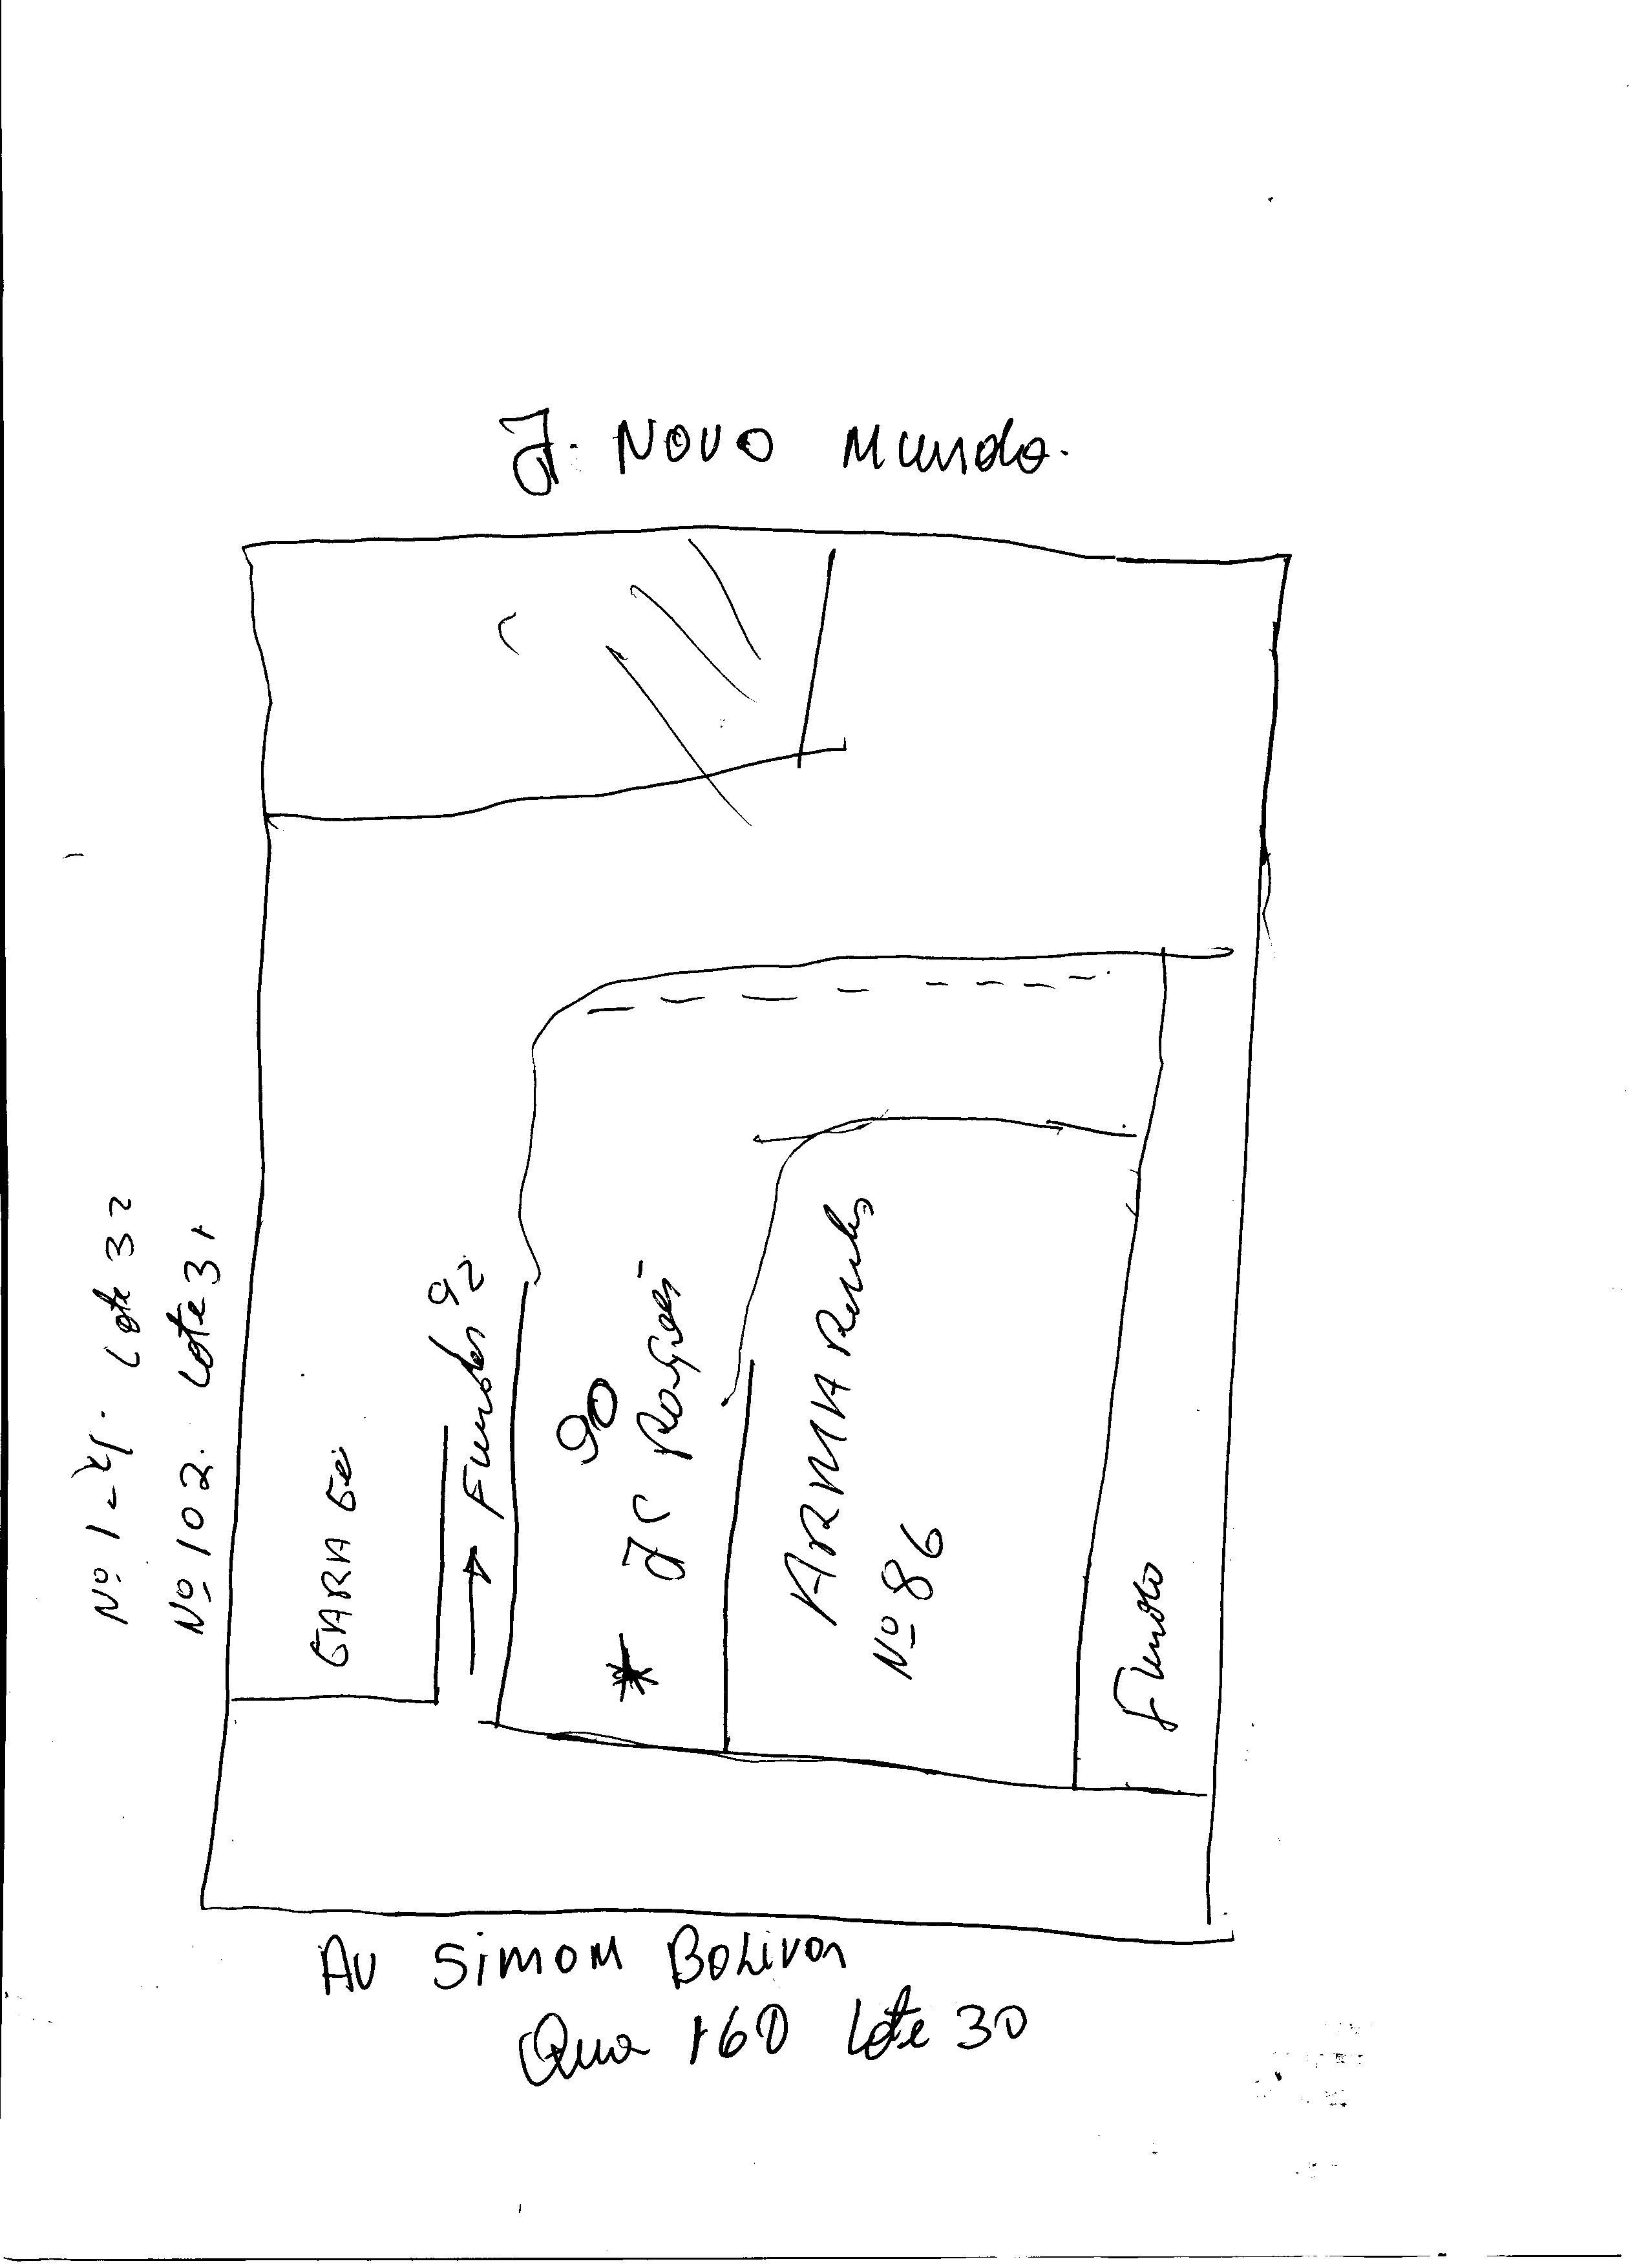 J. NOVO MUNDO.
Lote 32
Nº 102. Lote 31
GARAGE
Fundos 92
90
JC
ARMARINHO
Nº 86
Fundo
AV SIMOM BOLIVAR
Qua 160 Lote 30